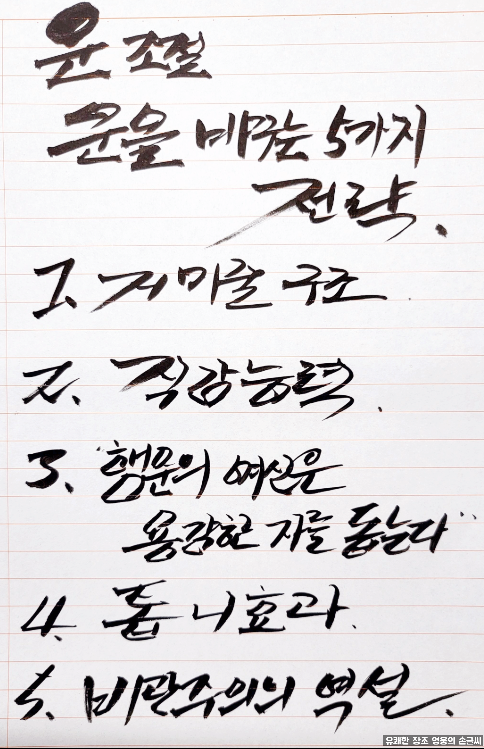 운 조절
운을 바꾸는 5가지
전략.
1. 거미줄 구조.
2. 직감능력.
3. "행운의 여신은
용감한 자를 돕는다"
4. 톱니효과.
5. 비관주의의 역설.
유쾌한 창조 영웅의 손글씨